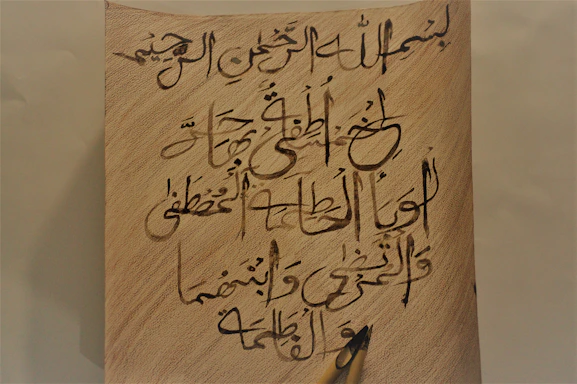 بِسْمِ اللهِ الرَّحْمٰنِ الرَّحِيْمِ
لِيْ خَمْسَةٌ أُطْفِيْ بِهَا حَرَّ
الْوَبَاْ الْحَاطِمَةِ الْمُصْطَفٰى
وَالْمُرْتَضٰى وَابْنَهُمَا
وَالْفَاطِمَةِ